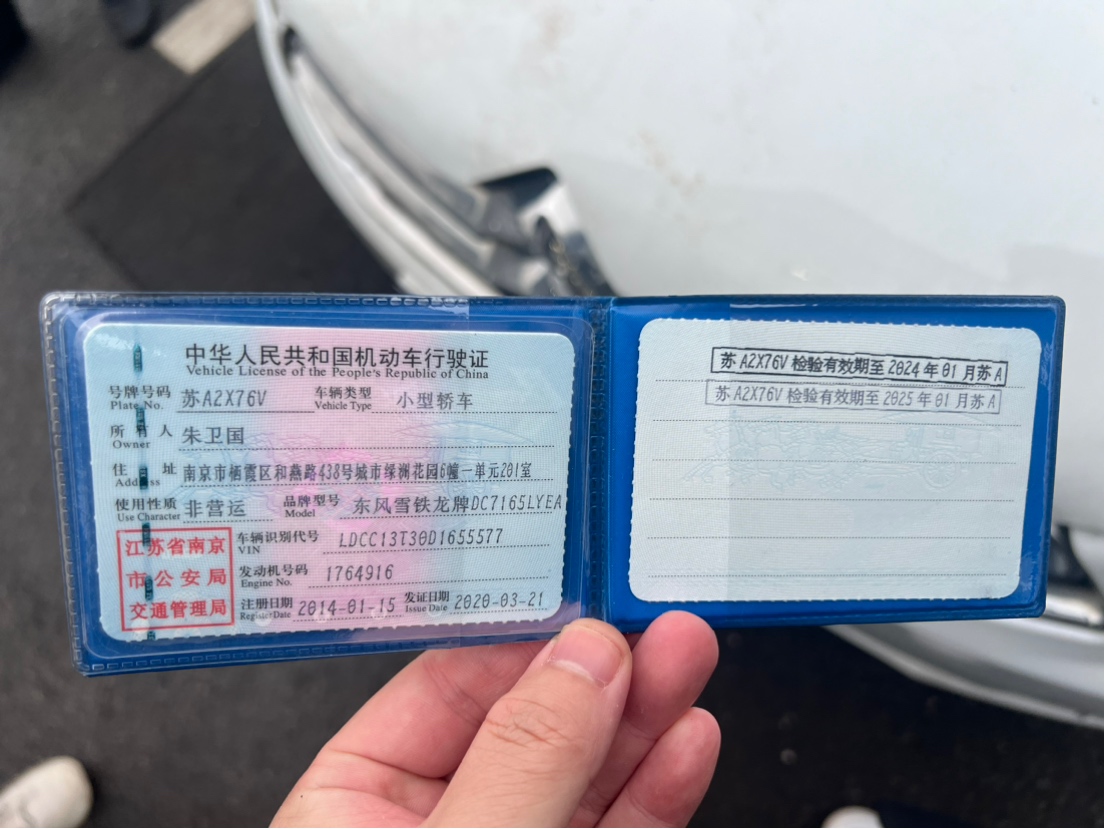 中华人民共和国机动车行驶证
Vehicle License of the People's Republic of China
号牌号码 苏A2X76V 车辆类型 小型轿车
Plate No. Vehicle Type
所有人 朱卫国
Owner
住址 南京市栖霞区和燕路438号城市绿洲花园6幢一单元201室
Address
使用性质 非营运 品牌型号 东风雪铁龙牌DC7165LYEA
Use Character Model
江苏省南京市公安局交通管理局
车辆识别代号 LDCC13T30D1655577
VIN
发动机号码 1764916
Engine No.
注册日期 2014-01-15 发证日期 2020-03-21
Register Date Issue Date
苏A2X76V 检验有效期至 2024年01月苏A
苏A2X76V 检验有效期至 2025年01月苏A